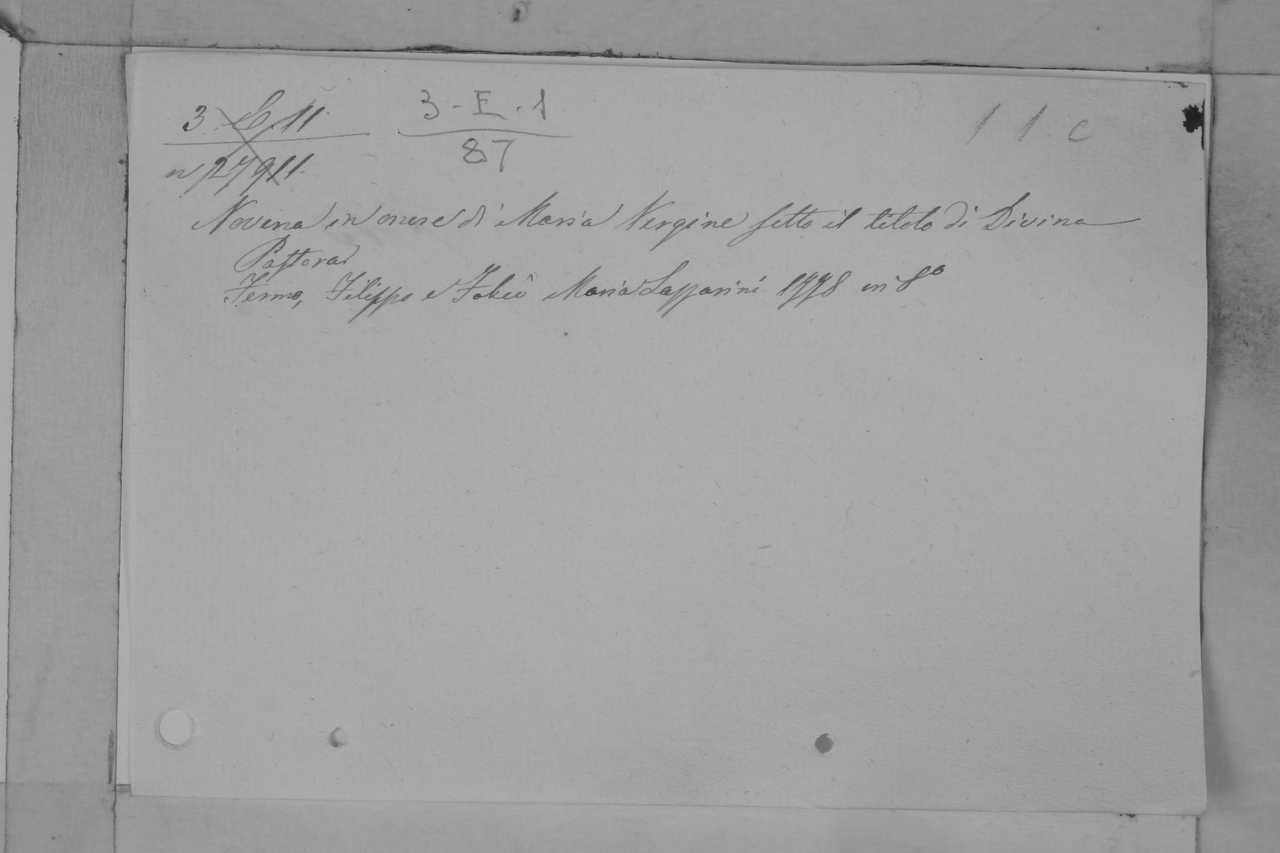 3. C. 11. 3 - E. 1 11 c
n. 27911. 87
Novena in onore di Maria Vergine sotto il titolo di Divina
Pastora
Fermo, Filippo e Maria 1778 in 8º